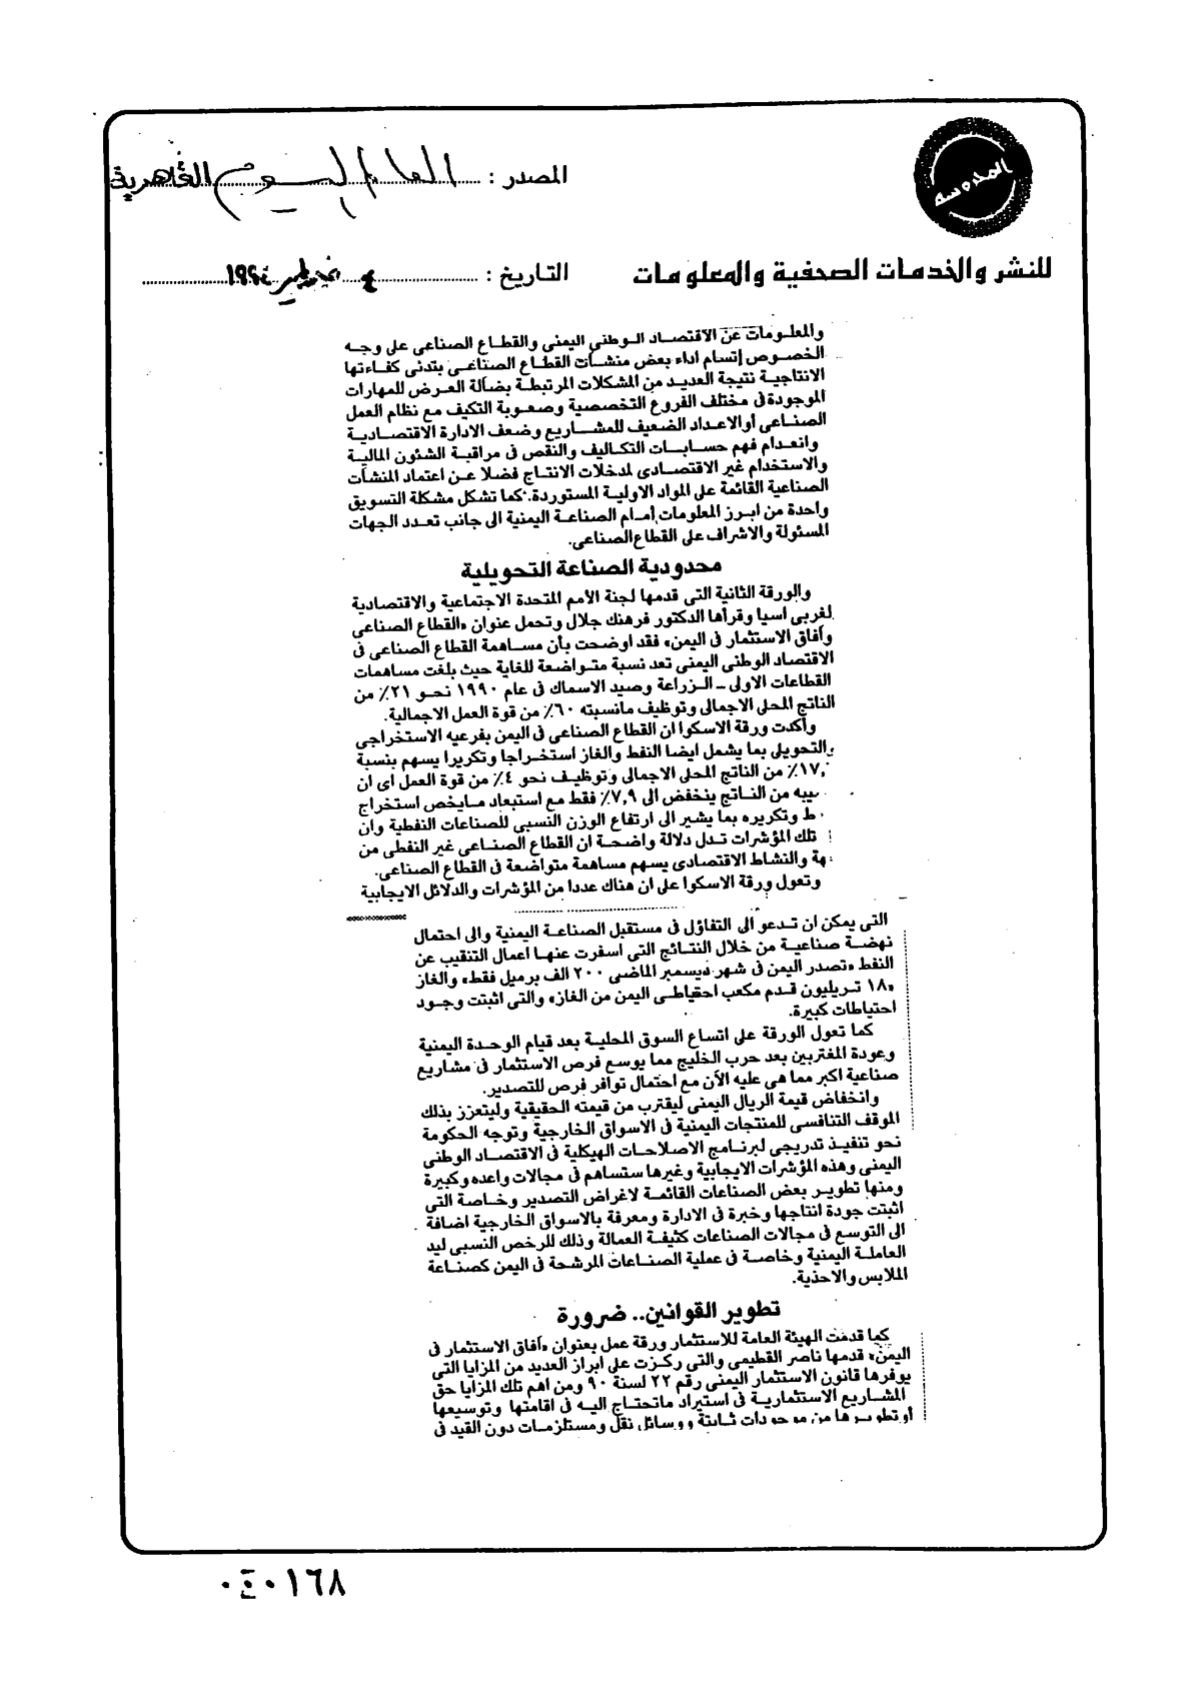 المحروسة
للنشر والخدمات الصحفية والمعلومات
المصدر : العالم اليوم القاهرية
التاريخ : ٤ ١٩٩٤
والمعلومات عن الاقتصاد الوطنى اليمنى والقطاع الصناعى على وجه
الخصوص إتسام اداء بعض منشآت القطاع الصناعى بتدنى كفاءتها
الانتاجية نتيجة العديد من المشكلات المرتبطة بضآلة العرض للمهارات
الموجودة فى مختلف الفروع التخصصية وصعوبة التكيف مع نظام العمل
الصناعى أوالاعداد الضعيف للمشاريع وضعف الادارة الاقتصادية
وانعدام فهم حسابات التكاليف والنقص فى مراقبة الشئون المالية
والاستخدام غير الاقتصادى لمدخلات الانتاج فضلا عن اعتماد المنشآت
الصناعية القائمة على المواد الاولية المستوردة. كما تشكل مشكلة التسويق
واحدة من ابرز المعلومات أمام الصناعة اليمنية الى جانب تعدد الجهات
المسئولة والاشراف على القطاع الصناعى.
محدودية الصناعة التحويلية
والورقة الثانية التى قدمها لجنة الأمم المتحدة الاجتماعية والاقتصادية
لغربى اسيا وقرأها الدكتور فرهنك جلال وتحمل عنوان «القطاع الصناعى
وآفاق الاستثمار فى اليمن» فقد اوضحت بأن مساهمة القطاع الصناعى فى
الاقتصاد الوطنى اليمنى تعد نسبة متواضعة للغاية حيث بلغت مساهمات
القطاعات الاولى ــ الزراعة وصيد الاسماك فى عام ١٩٩٠ نحو ٢١٪ من
الناتج المحلى الاجمالى وتوظيف مانسبته ٦٠٪ من قوة العمل الاجمالية.
وأكدت ورقة الاسكوا ان القطاع الصناعى فى اليمن بفرعيه الاستخراجى
والتحويلى بما يشمل ايضا النفط والغاز استخراجا وتكريرا يسهم بنسبة
١٧٪ من الناتج المحلى الاجمالى وتوظيف نحو ٤٪ من قوة العمل اى ان
من الناتج ينخفض الى ٧,٩٪ فقط مع استبعاد مايخص استخراج
وتكريره بما يشير الى ارتفاع الوزن النسبى للصناعات النفطية وان
تلك المؤشرات تدل دلالة واضحة ان القطاع الصناعى غير النفطى من
والنشاط الاقتصادى يسهم مساهمة متواضعة فى القطاع الصناعى.
وتعول ورقة الاسكوا على ان هناك عددا من المؤشرات والدلائل الايجابية
التى يمكن ان تدعو الى التفاؤل فى مستقبل الصناعة اليمنية والى احتمال
نهضة صناعية من خلال النتائج التى اسفرت عنها اعمال التنقيب عن
النفط «تصدر اليمن فى شهر ديسمبر الماضى ٢٠٠ الف برميل فقط» والغاز
«١٨ تريليون قدم مكعب احتياطى اليمن من الغاز» والتى اثبتت وجود
احتياطات كبيرة.
كما تعول الورقة على اتساع السوق المحلية بعد قيام الوحدة اليمنية
وعودة المغتربين بعد حرب الخليج مما يوسع فرص الاستثمار فى مشاريع
صناعية اكبر مما هى عليه الآن مع احتمال توافر فرص للتصدير.
وانخفاض قيمة الريال اليمنى ليقترب من قيمته الحقيقية وليتعزز بذلك
الموقف التنافسى للمنتجات اليمنية فى الاسواق الخارجية وتوجه الحكومة
نحو تنفيذ تدريجى لبرنامج الاصلاحات الهيكلية فى الاقتصاد الوطنى
اليمنى وهذه المؤشرات الايجابية وغيرها ستساهم فى مجالات واعده وكبيرة
ومنها تطوير بعض الصناعات القائمة لاغراض التصدير وخاصة التى
اثبتت جودة انتاجها وخبرة فى الادارة ومعرفة بالاسواق الخارجية اضافة
الى التوسع فى مجالات الصناعات كثيفة العمالة وذلك للرخص النسبى ليد
العاملة اليمنية وخاصة فى عملية الصناعات المرشحة فى اليمن كصناعة
الملابس والاحذية.
تطوير القوانين.. ضرورة
كما قدمت الهيئة العامة للاستثمار ورقة عمل بعنوان «آفاق الاستثمار فى
اليمن» قدمها ناصر القطيمى والتى ركزت على ابراز العديد من المزايا التى
يوفرها قانون الاستثمار اليمنى رقم ٢٢ لسنة ٩٠ ومن اهم تلك المزايا حق
المشاريع الاستثمارية فى استيراد ماتحتاج اليه فى اقامتها وتوسيعها
أو تطويرها من موجودات ثابتة ووسائل نقل ومستلزمات دون القيد فى
٠٤٠١٦٨